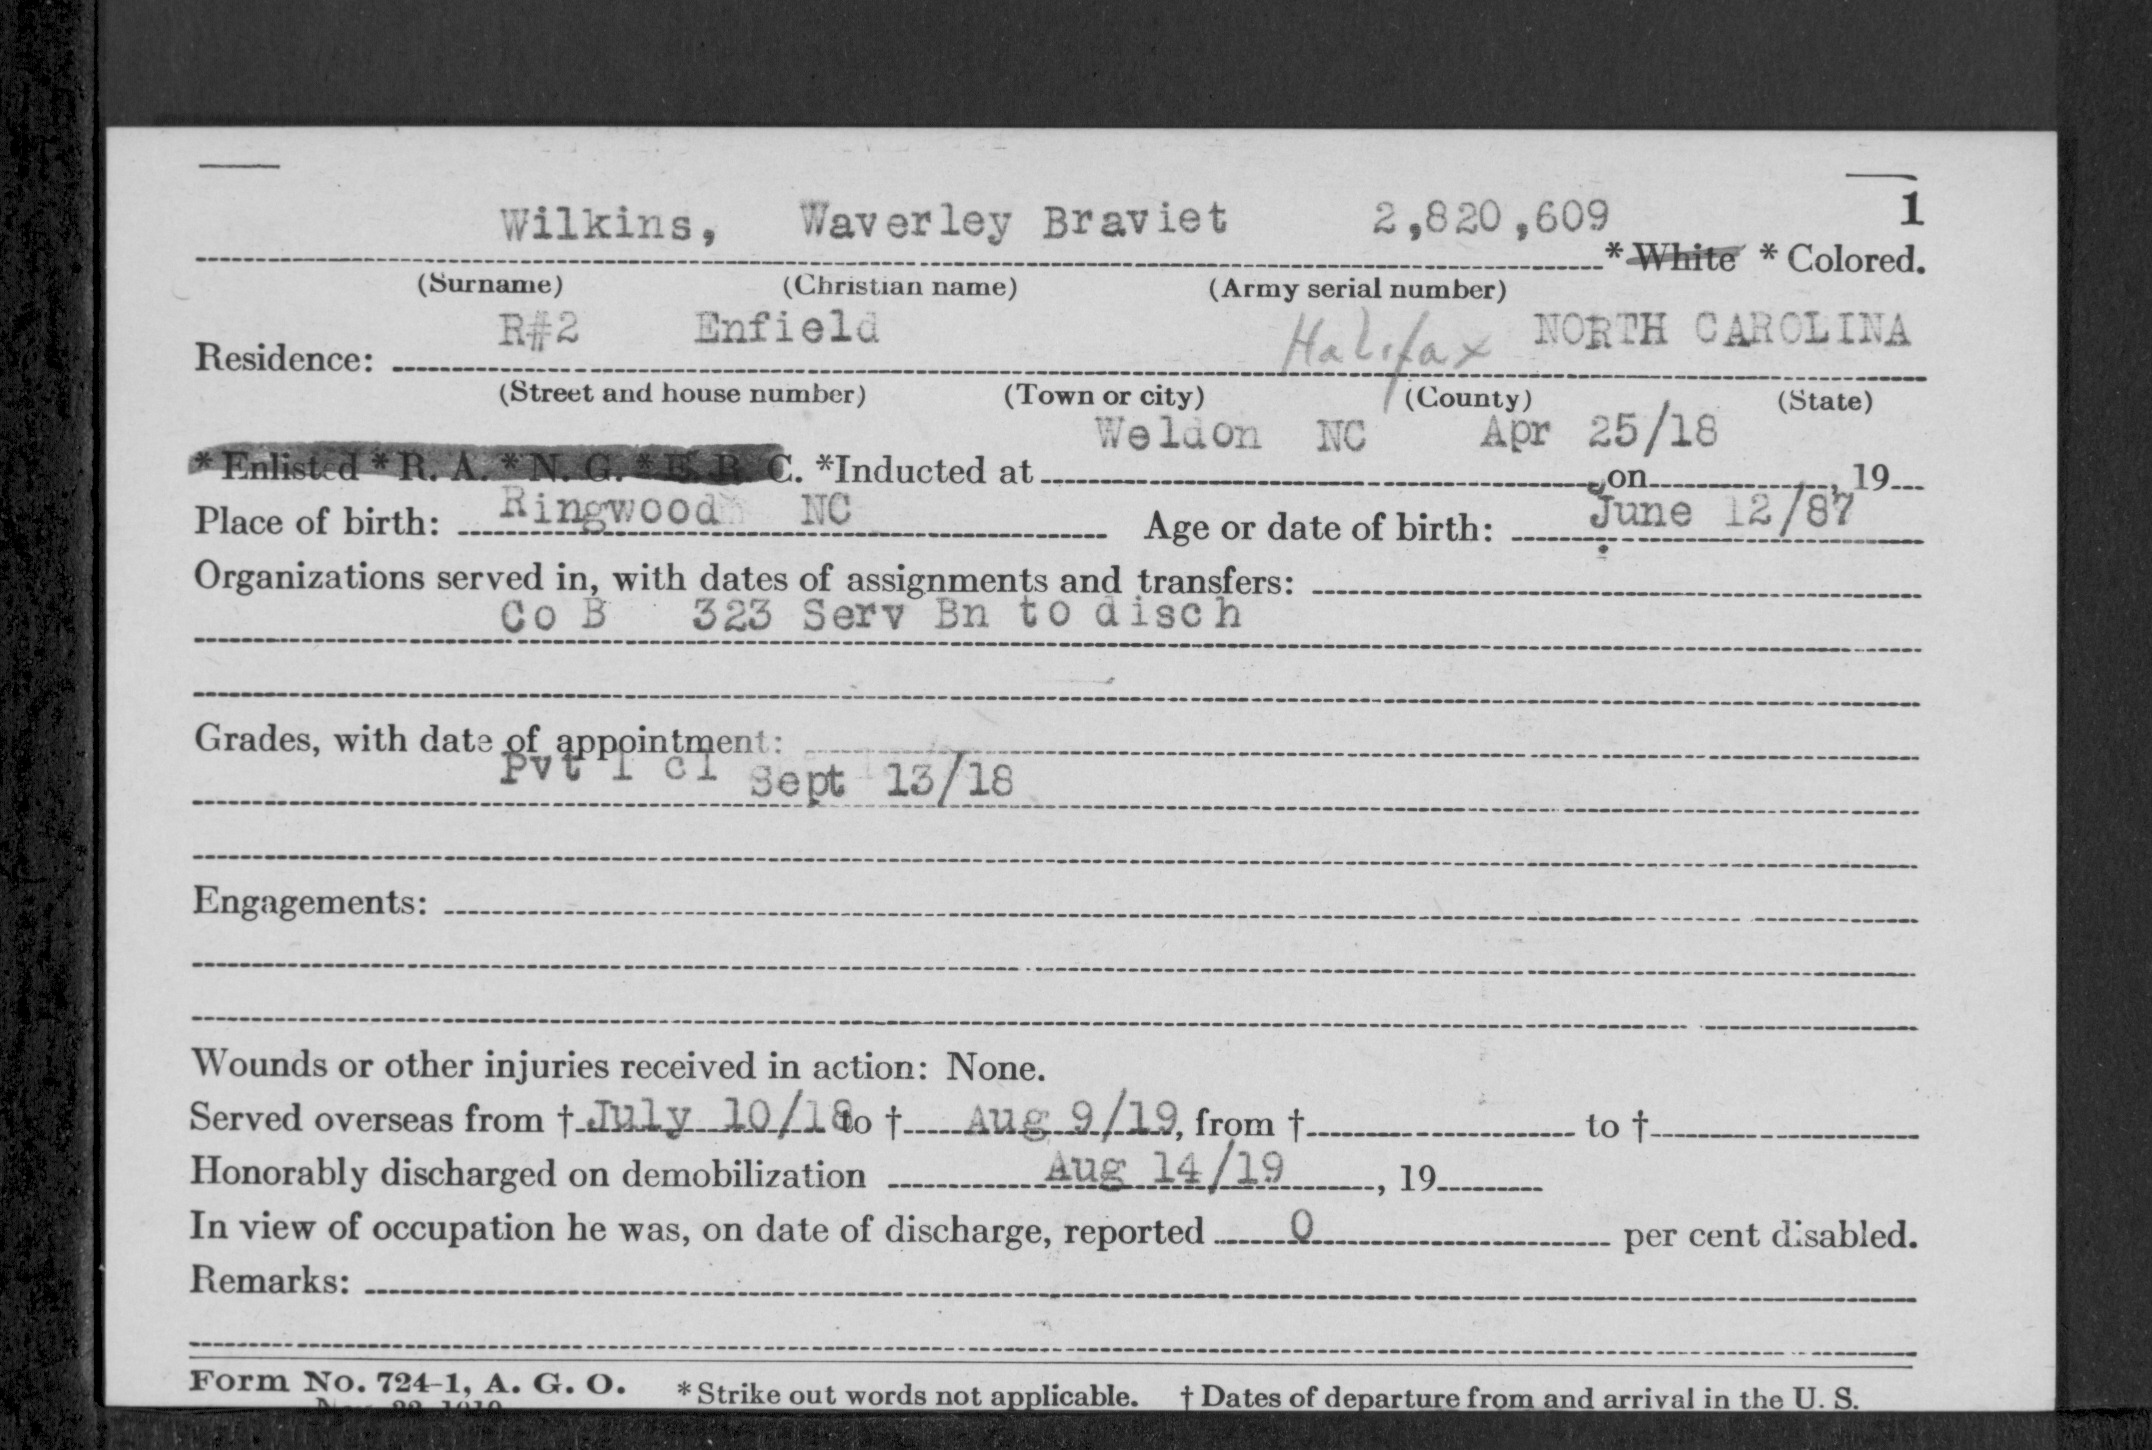 Wilkins, Waverley Braviet 2,820,609 1
* White * Colored.
(Surname) (Christian name) (Army serial number)
R#2 Enfield Halifax NORTH CAROLINA
Residence:
(Street and house number) (Town or city) (County) (State)
Weldon NC Apr 25/18
* Enlisted * R. A. * N. G. * E. R. C. *Inducted at , on , 19
Place of birth: Ringwood NC Age or date of birth: June 12/87
Organizations served in, with dates of assignments and transfers:
Co B 323 Serv Bn to disch
Grades, with date of appointment:
Pvt 1 cl Sept 13/18
Engagements:
Wounds or other injuries received in action: None.
Served overseas from † July 10/18 to † Aug 9/19, from † to †
Honorably discharged on demobilization Aug 14/19 , 19
In view of occupation he was, on date of discharge, reported 0 per cent disabled.
Remarks:
Form No. 724-1, A. G. O. * Strike out words not applicable. † Dates of departure from and arrival in the U. S.